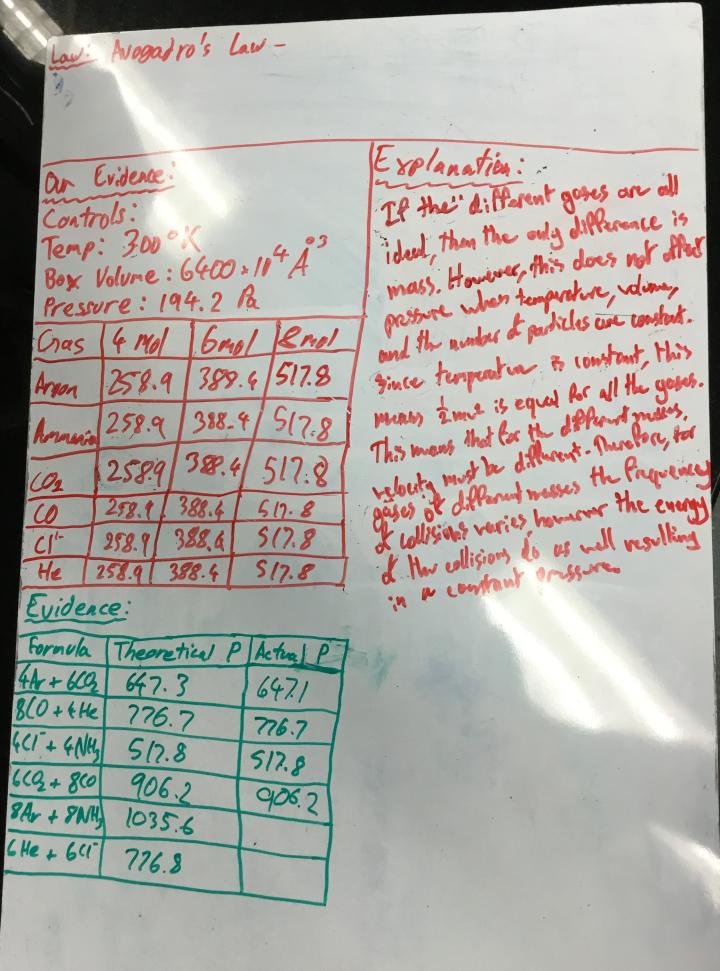 Law: Avogadro's Law -
Our Evidence:
Controls:
Temp: 300°K
Box Volume: 6400×10⁴ Å³
Pressure: 194.2 Pa
Gas 4 mol 6 mol 8 mol
Argon 258.9 388.4 517.8
Ammonia 258.9 388.4 517.8
CO₂ 258.9 388.4 517.8
CO 258.9 388.4 517.8
Cl⁻ 258.9 388.4 517.8
He 258.9 388.4 517.8
Explanation:
If the" different gases are all
ideal, then the only difference is
mass. However, this does not affect
pressure when temperature, volume,
and the number of particles are constant.
Since temperature is constant, this
means ½mv² is equal for all the gases.
This means that for the different masses,
velocity must be different. Therefore, for
gases of different masses the frequency
of collisions varies however the energy
of the collisions do as well resulting
in a constant pressure.
Evidence:
Formula Theoretical P Actual P
4Ar + 6CO₂ 647.3 647.1
8CO + 4He 776.7 776.7
4Cl⁻ + 4NH₃ 517.8 517.8
6CO₂ + 8CO 906.2 906.2
8Ar + 8NH₃ 1035.6
6He + 6Cl⁻ 776.8